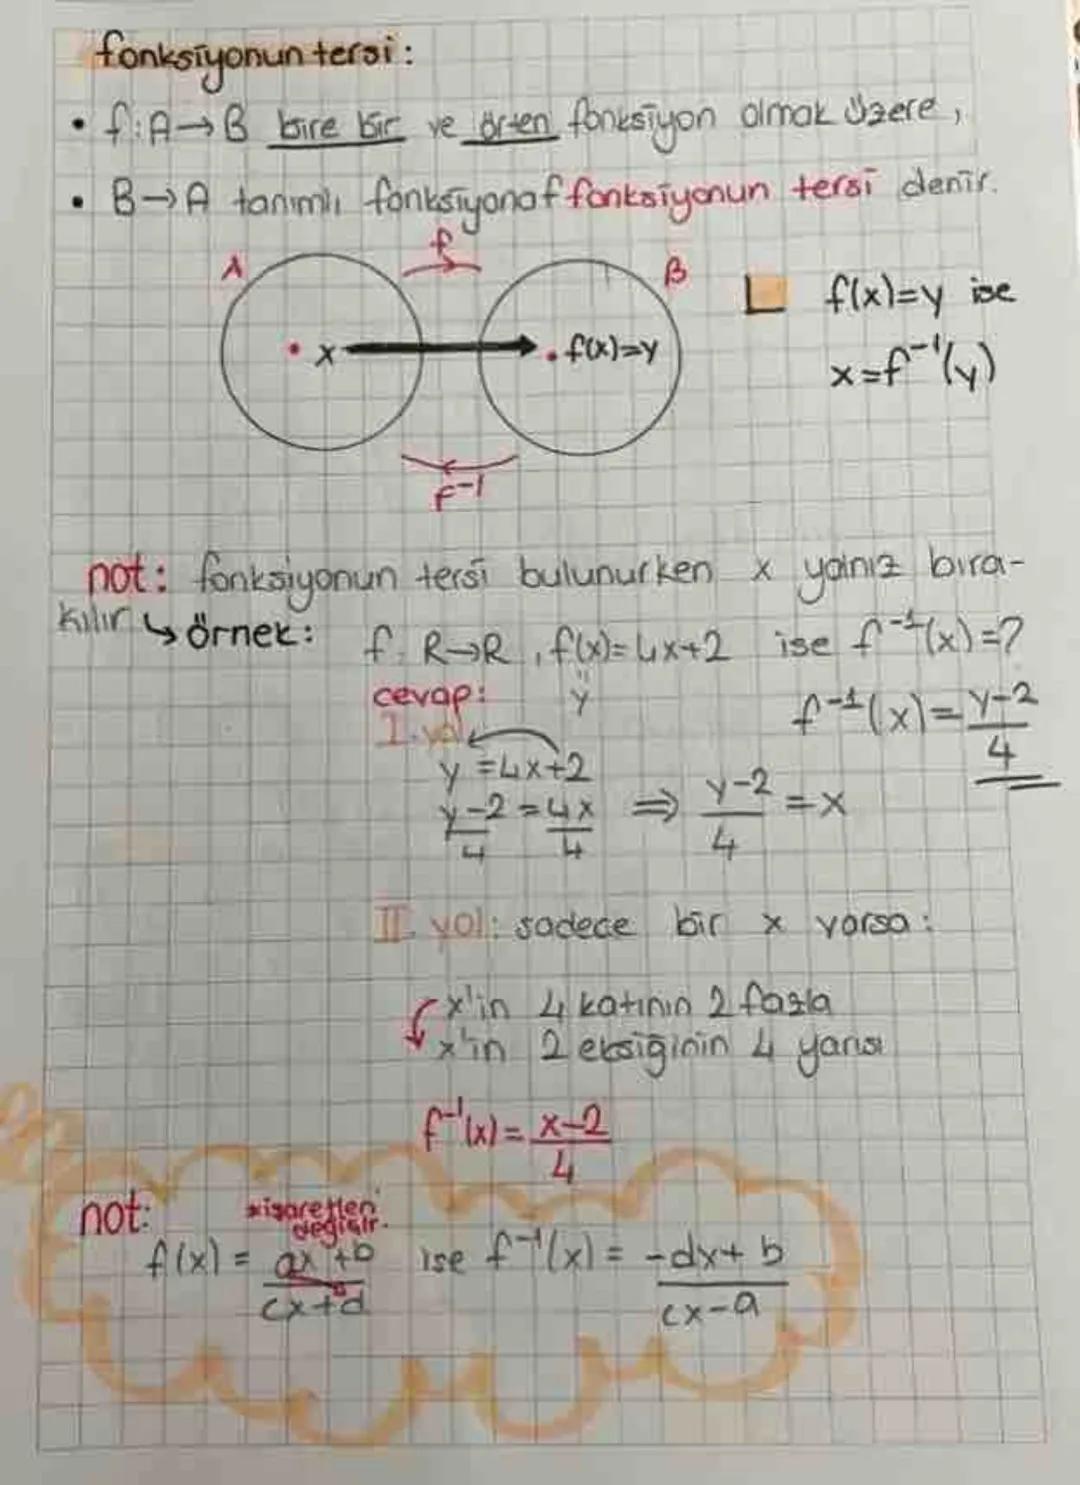 fonksiyonun tersi:
• f:A→B bire bir ve örten fonksiyon olmak üzere,
• B→A tanımlı fonksiyona f fonksiyonun tersi denir.
A f B
x f(x)=y
f⁻¹
f(x)=y ise
x=f⁻¹(y)
not: fonksiyonun tersi bulunurken x yalnız bıra-
kılır ↳ örnek: f: R→R, f(x)=4x+2 ise f⁻¹(x)=?
cevap: y
I. yol
y=4x+2
y-2/4 = 4x/4 ⇒ y-2/4 = x
f⁻¹(x)=y-2/4
II. yol: sadece bir x varsa:
x'in 4 katının 2 fazla
x'in 2 eksiğinin 4 yarısı
f⁻¹(x)=x-2/4
not: *işaretleri
değişir.
f(x) = ax+b/cx+d ise f⁻¹(x) = -dx+b/cx-a